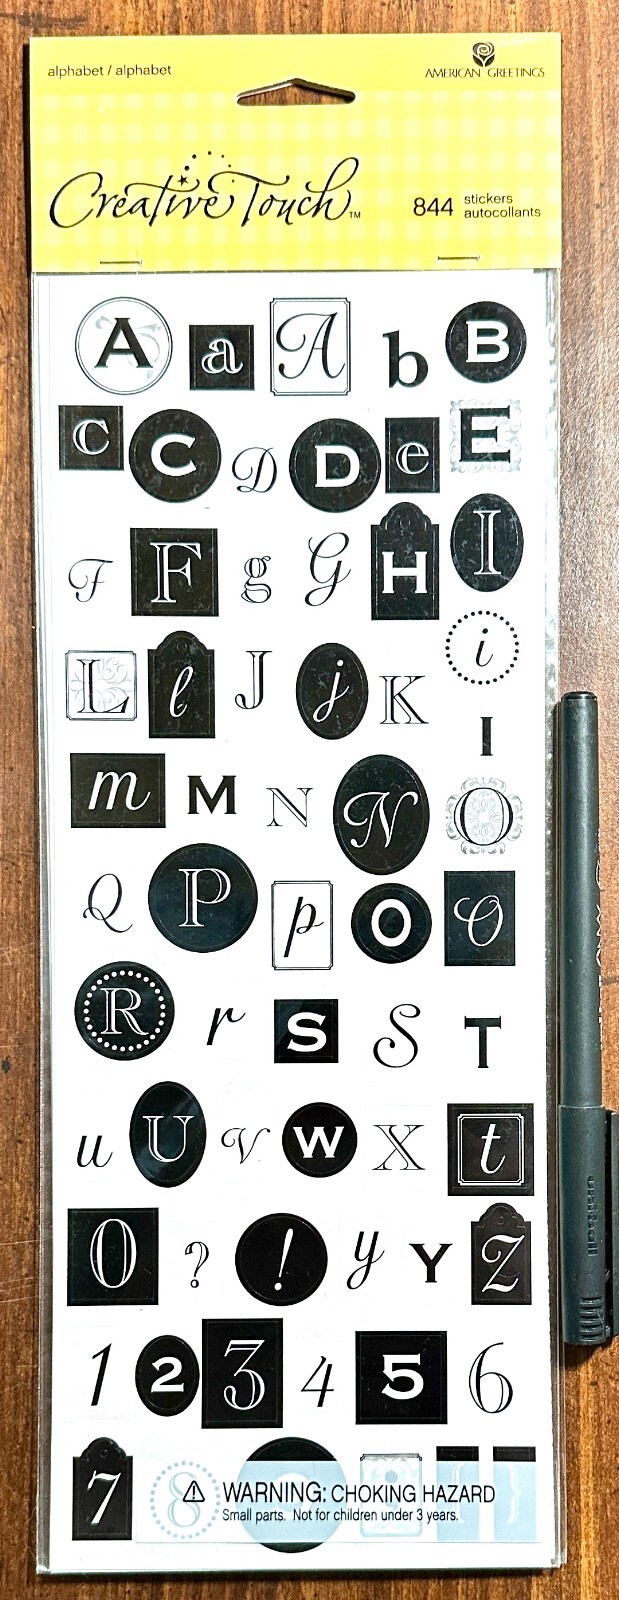 alphabet / alphabet
AMERICAN GREETINGS
Creative Touch™
844 stickers
autocollants
A a A b B
c C D D e E
F F g G H I
i
L l J j K
I
m M N N O
Q P p O O
R r S S T
u U V W X t
0 ? ! y Y Z
1 2 3 4 5 6
7 8
⚠ WARNING: CHOKING HAZARD
Small parts. Not for children under 3 years.